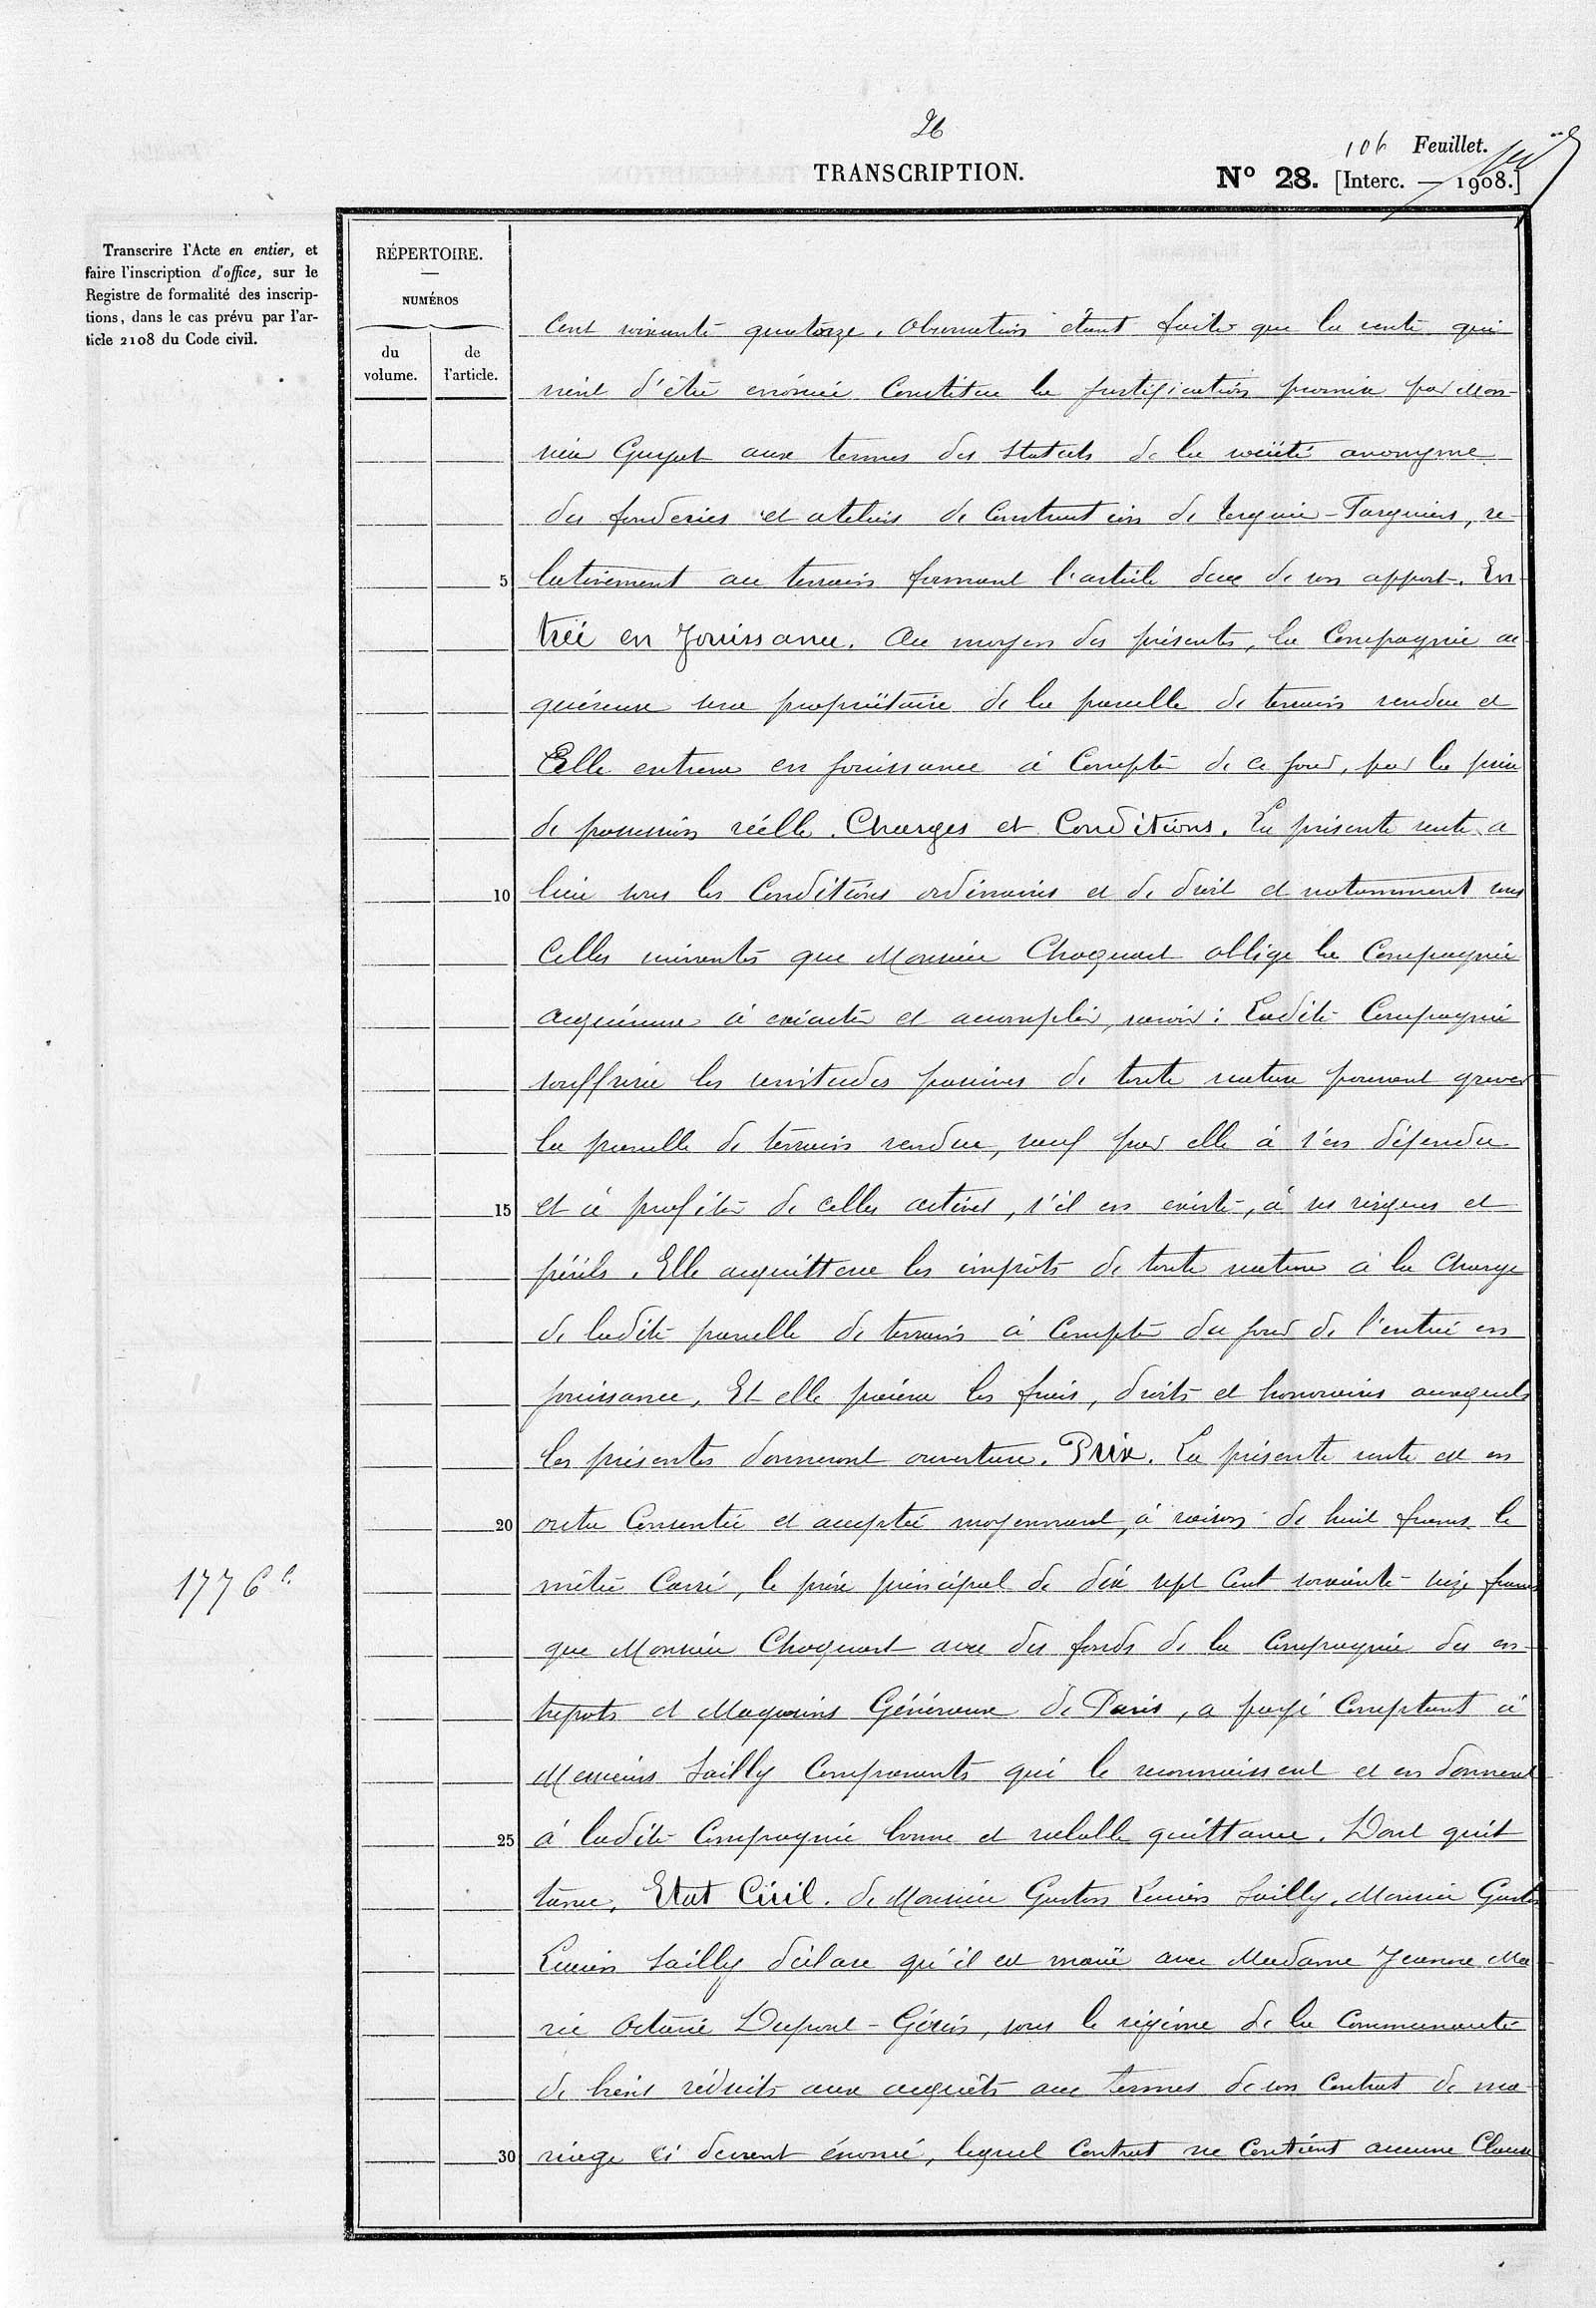 26
106 Feuillet.
TRANSCRIPTION.
N° 28. [Interc. — 1908.]
Transcrire l'Acte en entier, et
faire l'inscription d'office, sur le
Registre de formalité des inscrip-
tions, dans le cas prévu par l'ar-
ticle 2108 du Code civil.
RÉPERTOIRE.
NUMÉROS
du volume.
de l'article.
Cent soixante quatorze. Observation étant faite que la vente qui
vient d'être énoncée Constitue la justification promise par Mon-
sieur Guyot aux termes des statuts de la société anonyme
des fonderies et ateliers de Construction de Tergnier-Fargniers, re-
5 lativement au terrain formant l'article deux de son apport. En
trée en Jouissance. Au moyen des présentes, la Compagnie ac
quéreuse sera propriétaire de la parcelle de terrain vendue et
Elle entrera en jouissance à Compter de ce jour, par la prise
de possession réelle. Charges et Conditions. La présente vente a
10 lieu sous les Conditions ordinaires et de droit et notamment sous
Celles suivantes que Monsieur Choquart oblige la Compagnie
acquéreuse à exécuter et accomplir, savoir : Ladite Compagnie
souffrira les servitudes passives de toute nature pouvant grever
la parcelle de terrain vendue, sauf par elle à s'en défendre
15 et à profiter de celles actives, s'il en existe, à ses risques et
périls. Elle acquittera les impôts de toute nature à la Charge
de ladite parcelle de terrain à Compter du jour de l'entrée en
jouissance, Et elle paiera les frais, droits et honoraires auxquels
les présentes donneront ouverture. Prix. La présente vente est en
20 outre Consentie et acceptée moyennant, à raison de huit francs le
mètre Carré, le prix principal de dix sept Cent soixante seize francs
1776 f.
que Monsieur Choquart avec des fonds de la Compagnie des en-
trepots et Magasins Généraux de Paris, a payé Comptant à
Messieurs Sailly Comparants qui le reconnaissent et en donnent
25 à ladite Compagnie bonne et valable quittance. Dont quit
tance. Etat Civil. de Monsieur Gaston Lucien Sailly. Monsieur Gaston
Lucien Sailly déclare qu'il est marié avec Madame Jeanne Ma
rie Octavie Dupont-Gérin, sous le régime de la Communauté
de biens réduite aux acquêts aux termes de son Contrat de ma
30 riage ci devant énoncé, lequel Contrat ne Contient aucune Clause